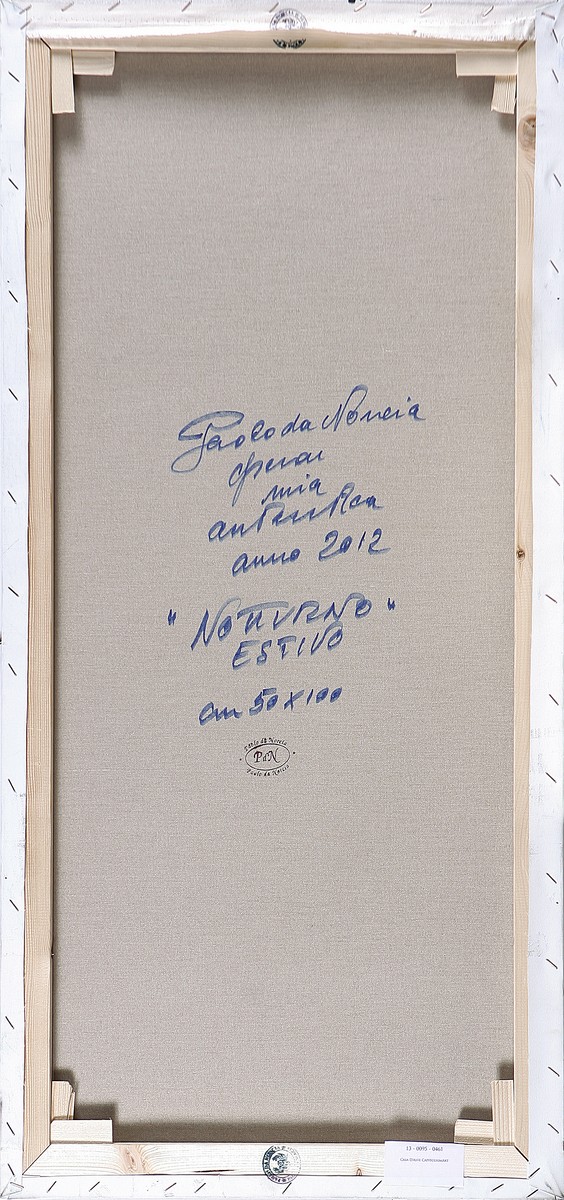 Paolo da Norcia
opera
mia
autentica
anno 2012
"NOTTURNO"
ESTIVO
cm 50x100
Paolo da Norcia
PdN
Paolo da Norcia
13 - 0095 - 0461